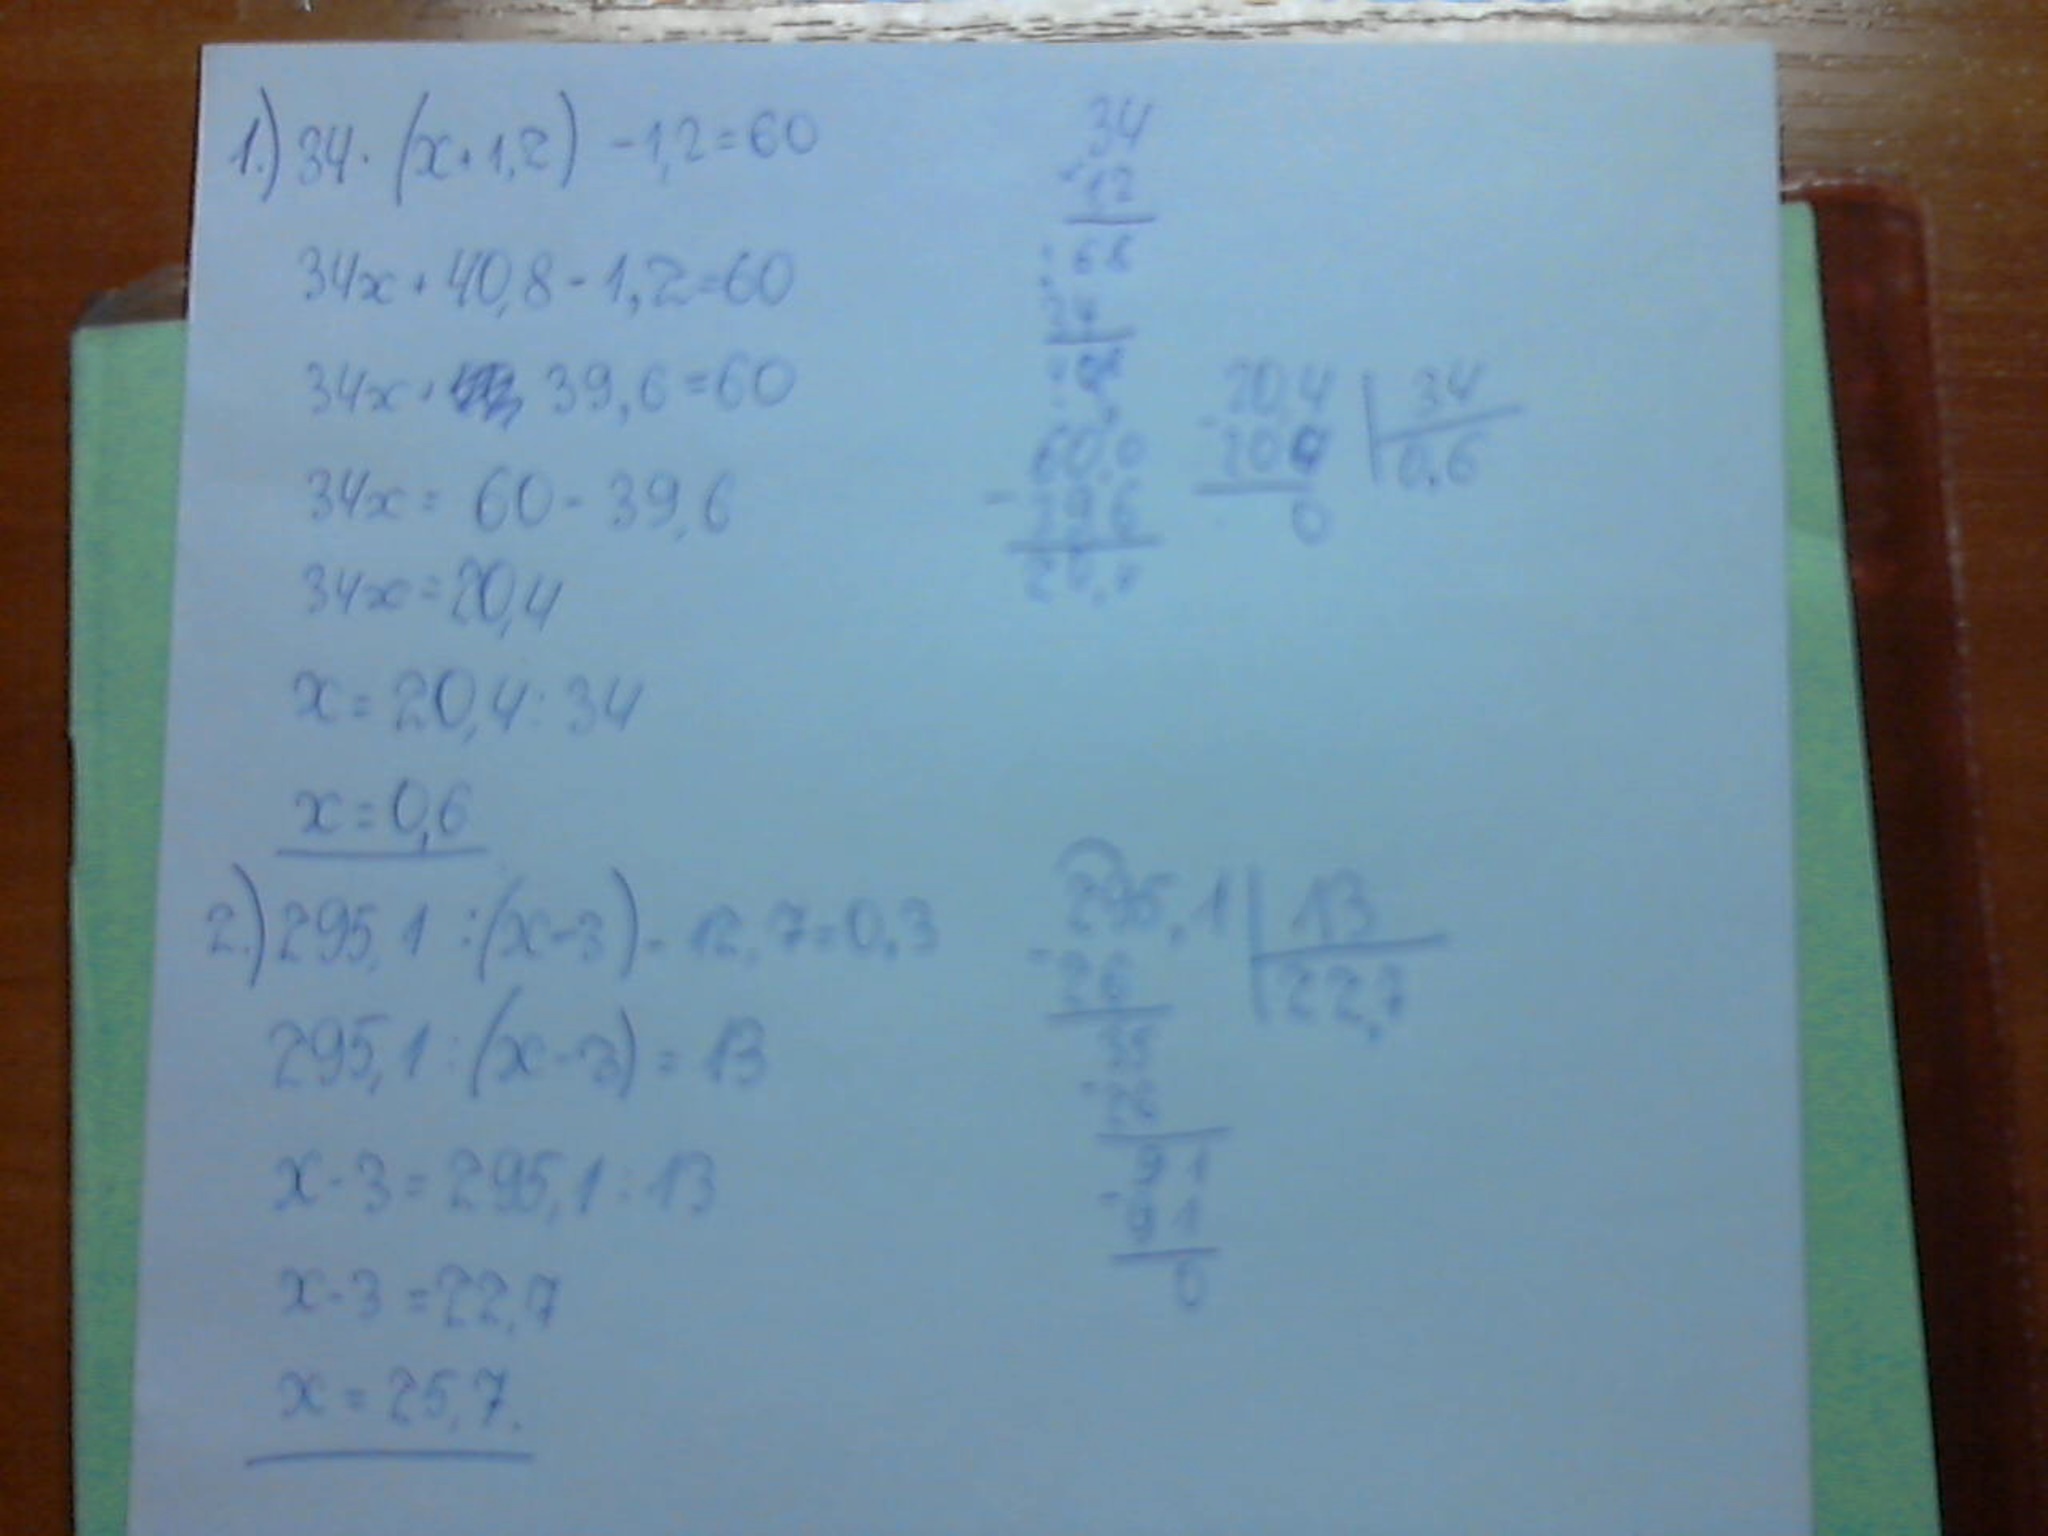 1.) 34 · (x+1,2) - 1,2=60
34x+40,8-1,2=60
34x+ 39,6=60
34x= 60-39,6
34x=20,4
x=20,4:34
x=0,6
34
12
68
34
60,0
39,6
20,4 34
204 0,6
0
2.) 295,1:(x-3)-12,7=0,3
295,1:(x-3)=13
x-3=295,1:13
x-3=22,7
x=25,7.
295,1 13
-26 22,7
35
-26
91
-91
0